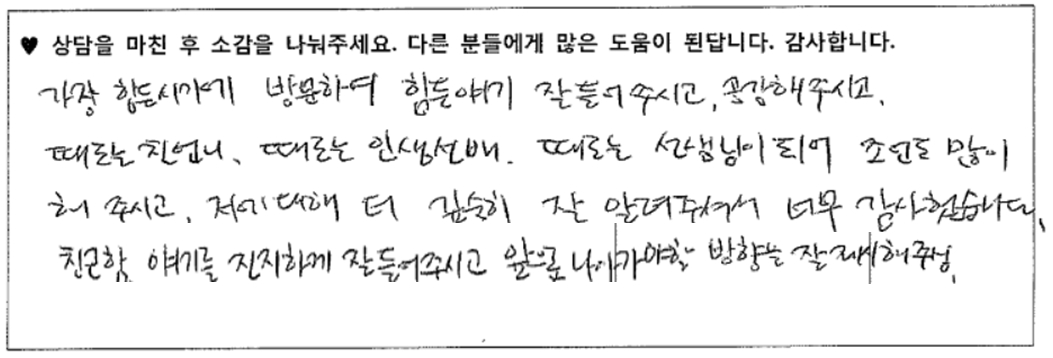 ♥ 상담을 마친 후 소감을 나눠주세요. 다른 분들에게 많은 도움이 된답니다. 감사합니다.
가장 힘든시기에 방문하여 힘든얘기 잘들어주시고, 공감해주시고,
때로는 친언니, 때로는 인생선배, 때로는 선생님이 되어 조언도 많이
해 주시고, 저에대해 더 깊숙히 잘 알려주셔서 너무 감사했습니다.
친근함, 얘기를 진지하게 잘들어주시고 앞으로 나아가야할 방향을 잘 제시해주심.